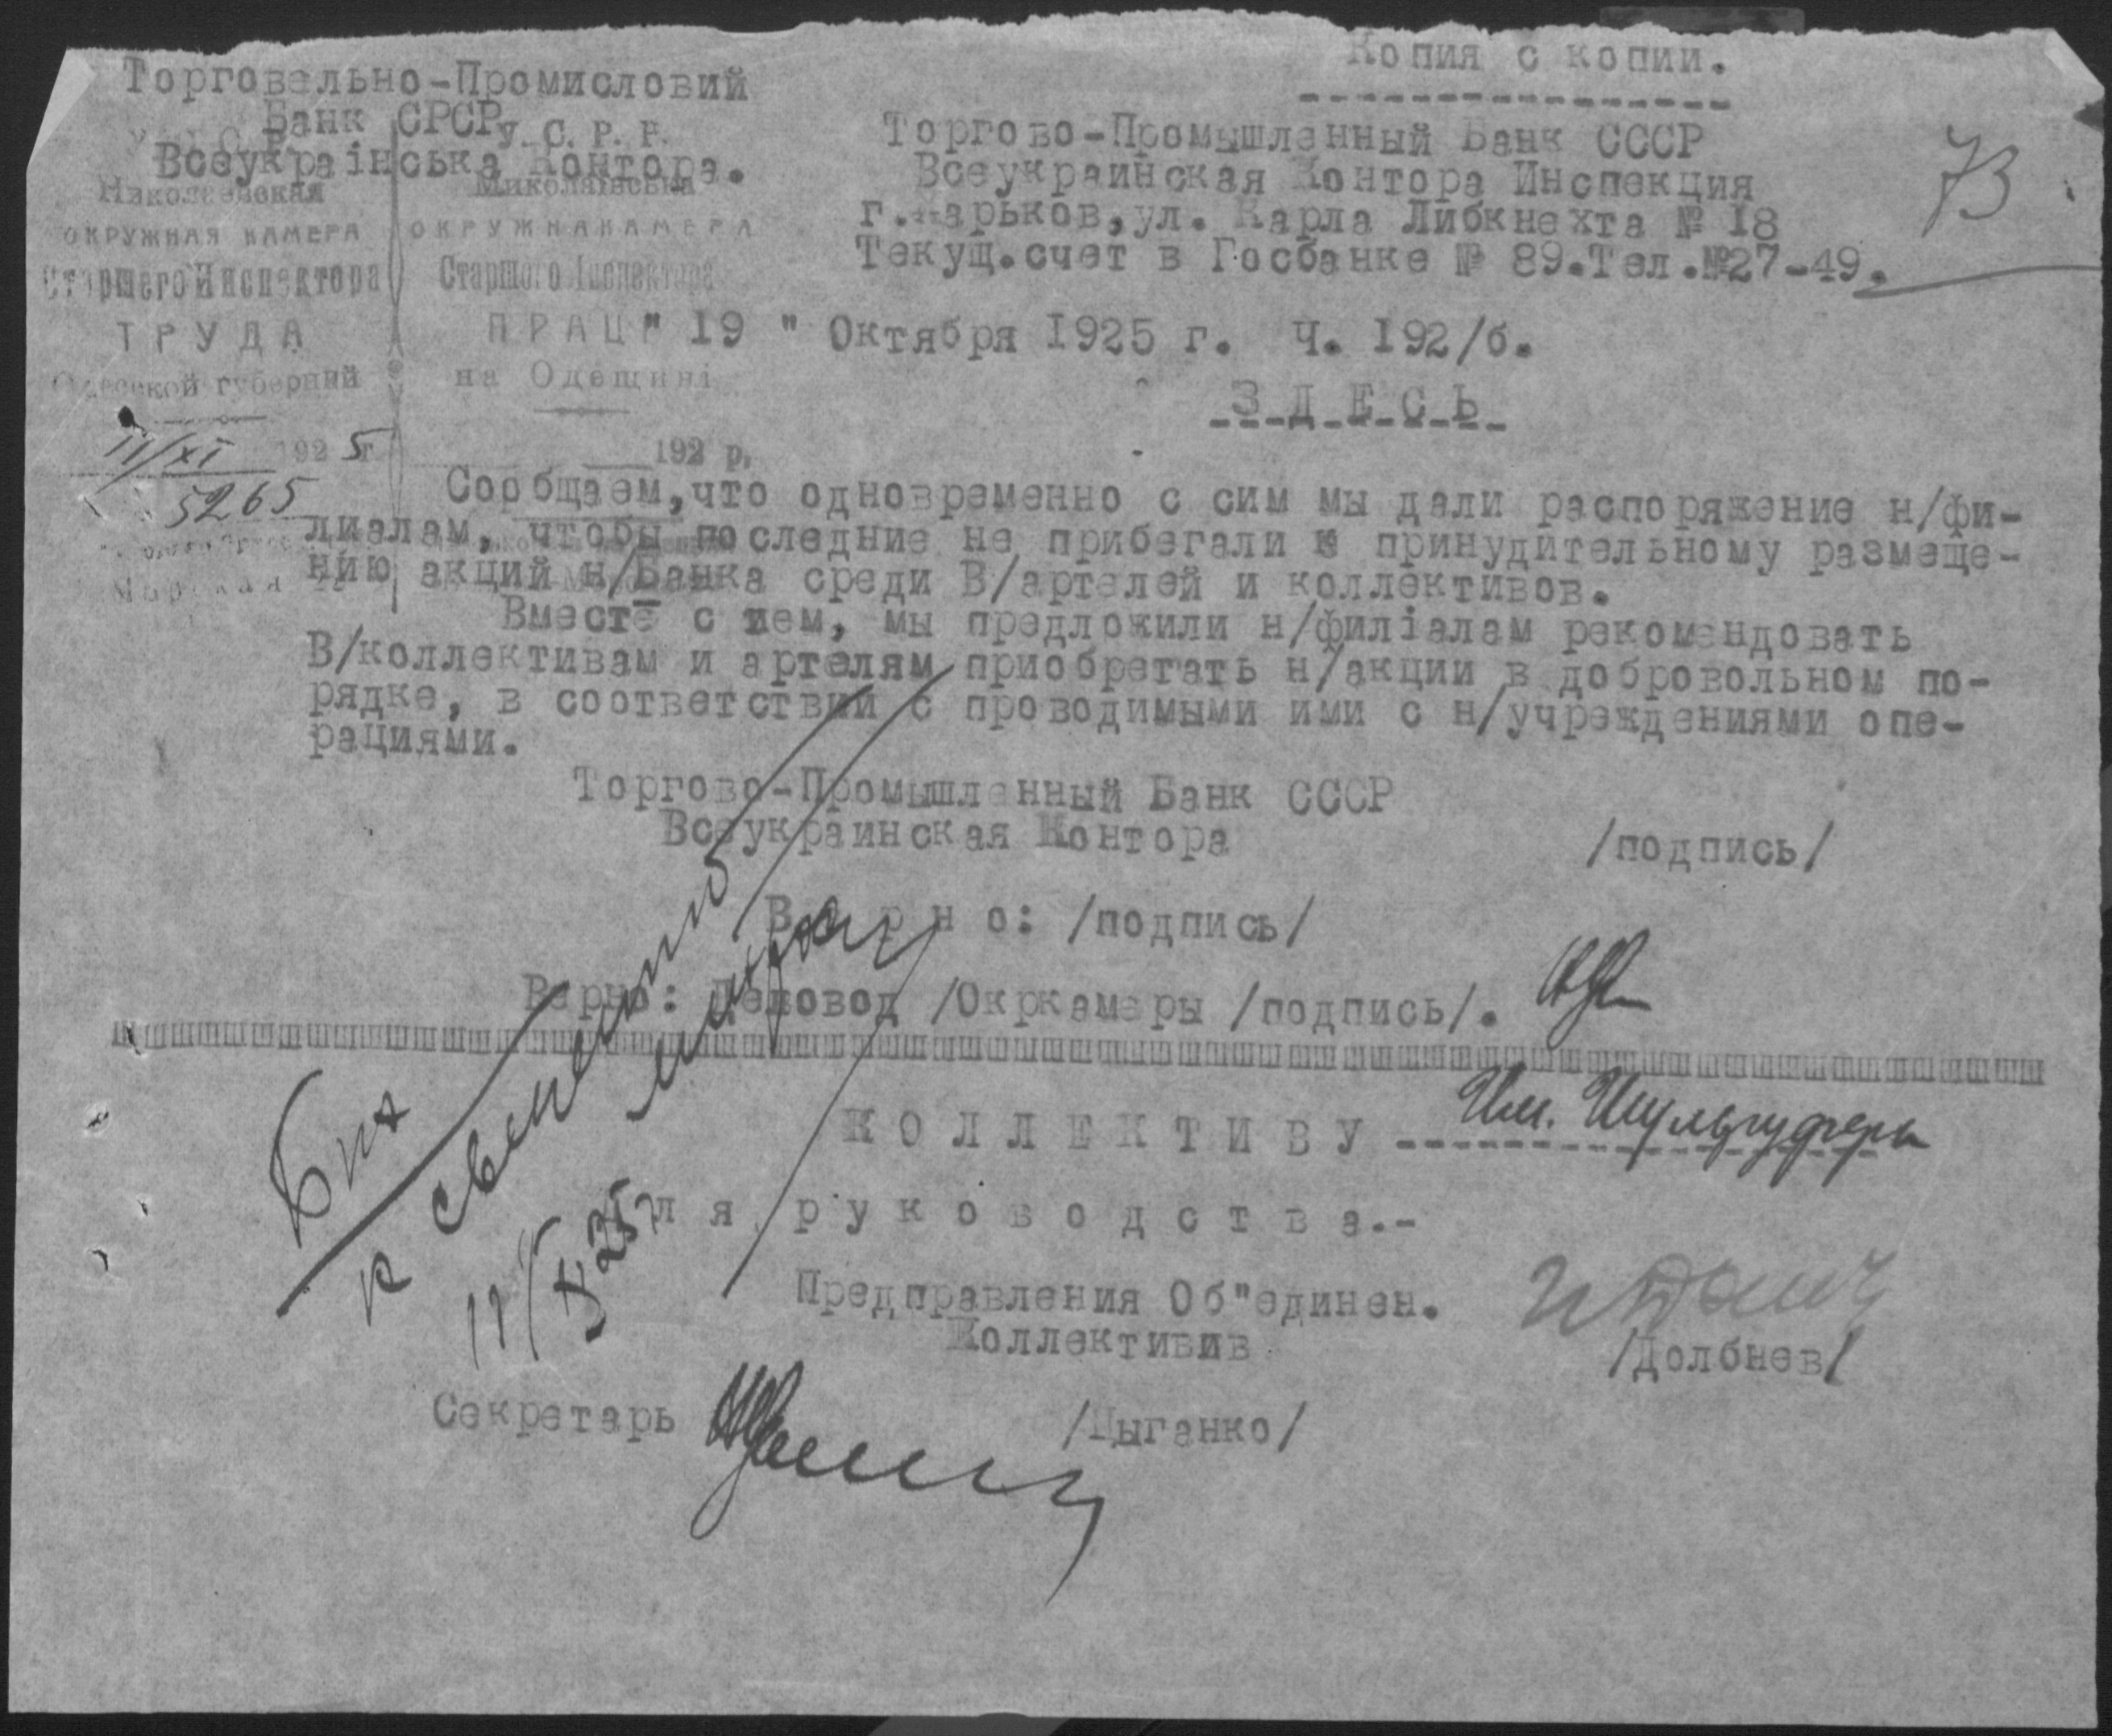 Копия с копии.
Торговельно-Промисловий
Банк СРСР
Всеукраінська Контора.
Торгово-Промышленный Банк СССР
Всеукраинская Контора Инспекция
г.Харьков,ул. Карла Либкнехта № 18
Текущ.счет в Госбанке № 89.Тел.№27-49.
73
У. С. Р. Р.
Николаевская
ОКРУЖНАЯ КАМЕРА
Старшего Инспектора
ТРУДА
Одесской губернии
11/XI 1925 г.
5265
У. С. Р. Р.
Миколаівська
ОКРУЖНА КАМЕРА
Старшого Інспектора
ПРАЦІ
на Одещині
192 р.
"19" Октября 1925 г. Ч. 192/б.
ЗДЕСЬ
Сообщаем,что одновременно с сим мы дали распоряжение н/фи-
лиалам, чтобы последние не прибегали к принудительному размеще-
нию акций н/Банка среди В/артелей и коллективов.
Вместе с тем, мы предложили н/филіалам рекомендовать
В/коллективам и артелям приобретать н/акции в добровольном по-
рядке, в соответствии с проводимыми ими с н/учреждениями опе-
рациями.
Торгово-Промышленный Банк СССР
Всеукраинская Контора /подпись/
Верно: /подпись/
Верно: Деловод /Окркамеры /подпись/.
КОЛЛЕКТИВУ Им.
Для руководства.-
к сведению
11/X 25
Предправления Об"единен.
Коллективив
/Долбнев/
Секретарь /Цыганко/